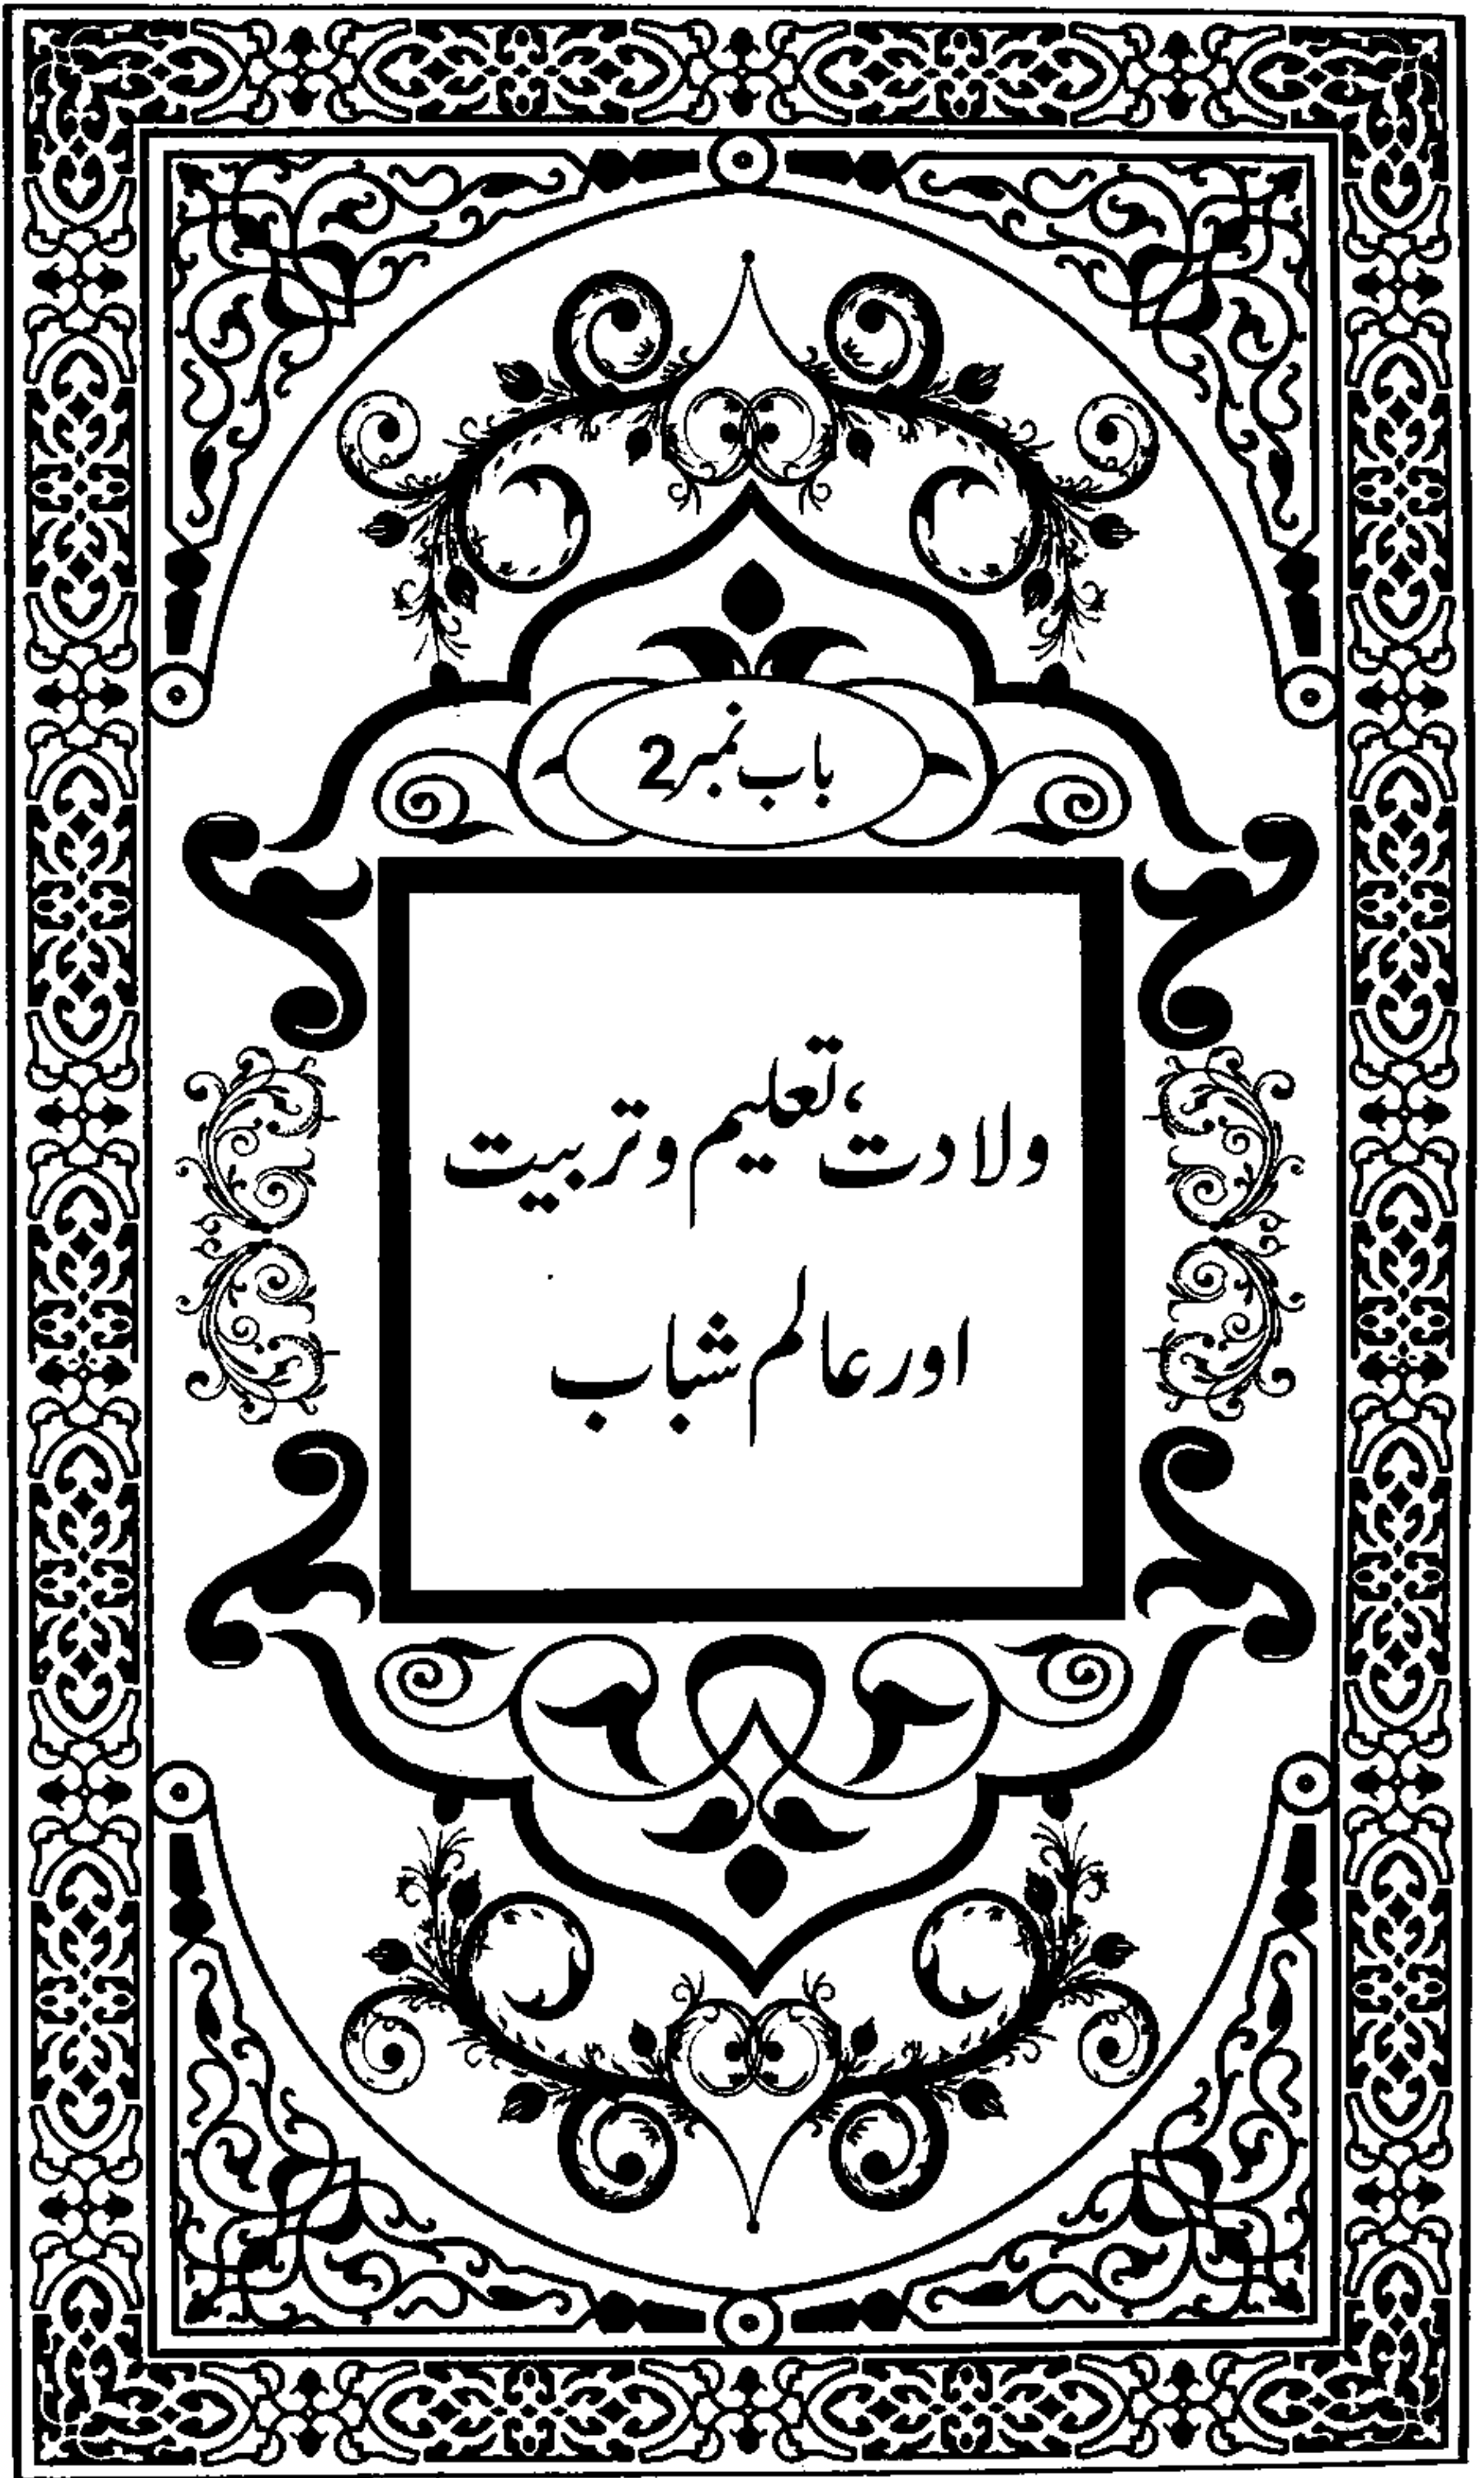 باب نمبر 2
ولادت، تعلیم و تربیت
اور عالم شباب